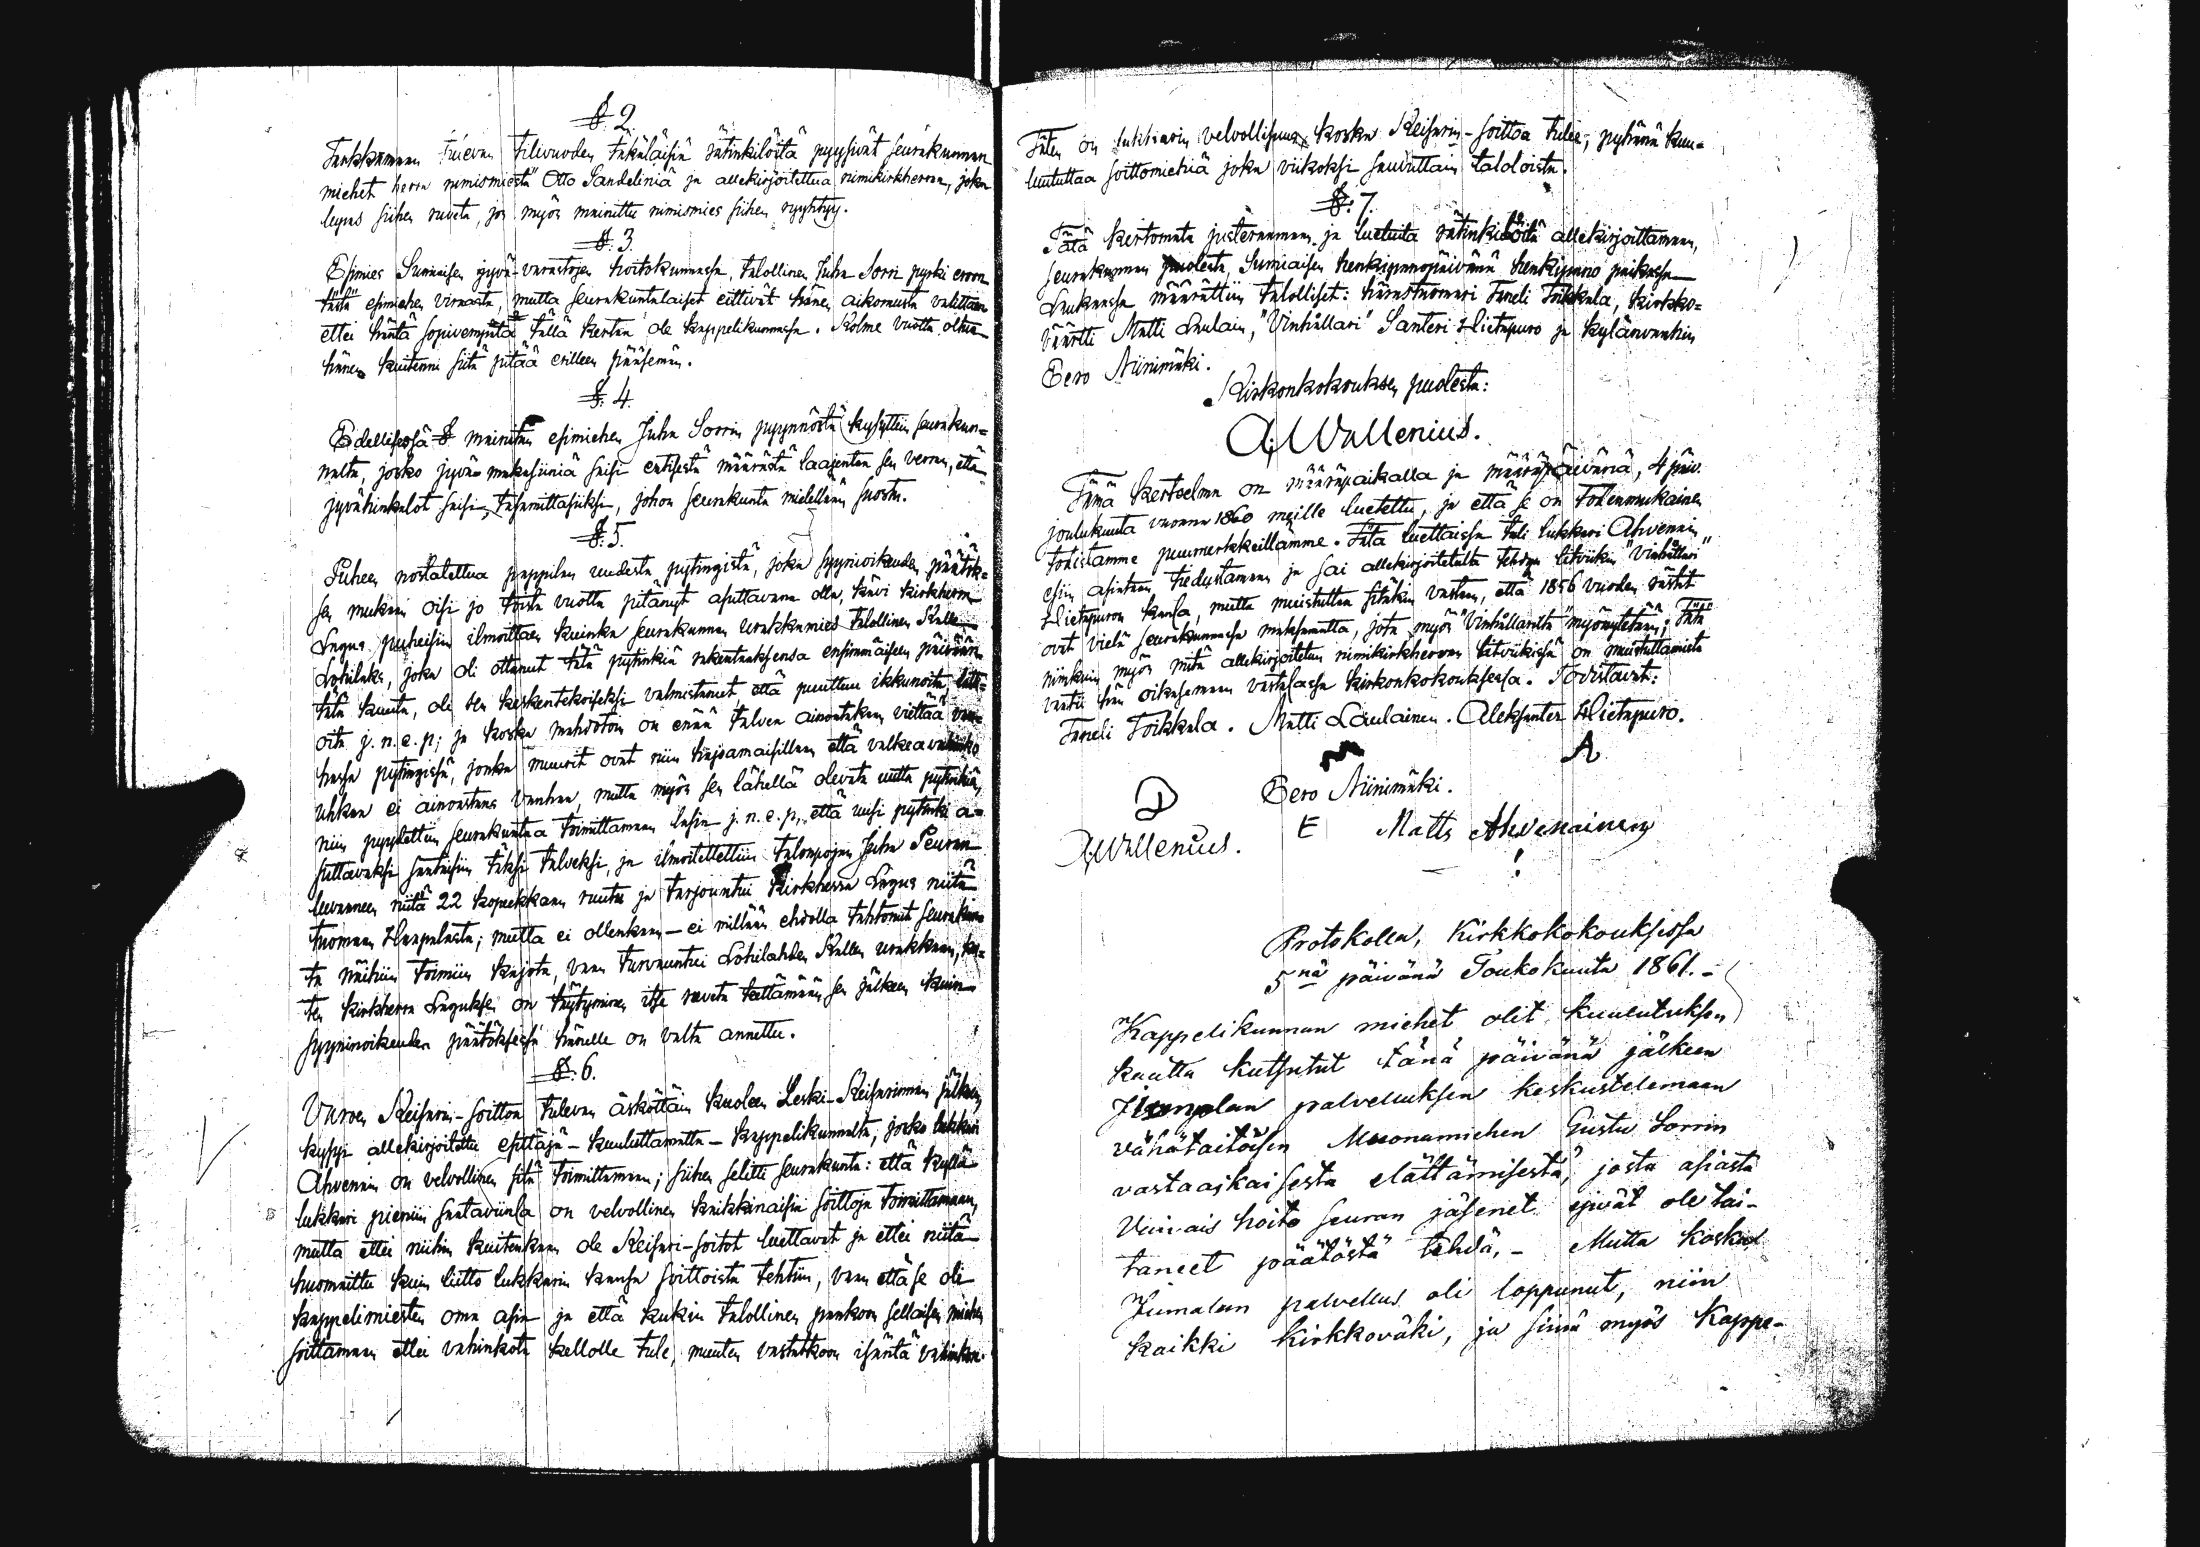 § 2
Tarkkamaan tulevan tilivuoden täkäläisiä rätinkilöitä pyysivät seurakunnan
miehet herra nimismiestä Otto Sandeliniä ja allekirjoitettua nimikirkherraa, joka
lupas siihen ruveta, jos myös mainittu nimismies siihen ryyhtyy.
§: 3.
Esimies Sumiaisen jyvä-varastojen hoitokunnassa, talollinen Juha Sorri pyrki eroon
tästä esimiehen virasta, mutta seurakuntalaiset eittivät hänen aikomusta valittaen
ettei häntä sopivempata tällä kertaa ole kappelikunnassa. Kolme vuotta oltua
hänen kuitenni siitä pitää erilleen pääsemän.
§: 4.
Edellisessä § mainitun esimiehen Juha Sorrin pyynnöstä kysyttiin seurakun=
nalta, josko jyvä-makasiiniä saisi entisestä määrästä laajentaa sen verran, että
jyvähinkalot saisi tasamittasiksi, johon seurakunta mielellään suostu.
§: 5.
Puheen nostatettua pappilan uudesta pytingistä, joka syynioikeuden päätök=
sen mukaan oisi jo toista vuotta pitänyt asuttavana olla, kävi kirkkherra
Lagus puheisin ilmoittaen kuinka seurakunnan urakkamies talollinen Kalle
Lohilaks, joka oli ottanut tätä pytinkiä rakentaaksensa ensimmäiseen päivään
tätä kuuta, oli sen keskentekoiseksi valmistanut, että puuttuu ikkunoita, latt=
oita j. n. e. p; ja koska mahdotoin on enää talven ainoatakaan viettää van=
hassa pytingissä, jonka muurit ovat niin hajoamaisillaan että valkeavahinko
uhkaa ei ainoastans vanhaa, mutta myös sen lähellä olevata uutta pytinkiä,
niin pyydettiin seurakuntaa toimittamaan lasia j. n. e. p, että uusi pytinki a=
suttavaksi saataisiin täksi talveksi, ja ilmoitettettiin talonpojan Juha Peuran
luvanneen niitä 22 kopeekkaan ruutu ja tarjountui kirkherra Lagus niitä
tuomaan Haapalasta; mutta ei ollenkaan — ei millään ehdolla tahtonut seurakun=
ta näihin toimiin kajota, vaan turvauntui Lohilahden Kallen urakkaan, jo=
ten kirkherra Laguksen on täytyminen itse ruveta teettämään sen jälkeen kuin
syyninoikeuden päätöksessä hänelle on valta annettu.
§: 6.
Varoen Keisarin-soittoa tulevan äsköttäin kuolleen Leski-Keisarinnan jälkeen,
kysyi allekirjoitettu esittäjä — kuuluttamatta — kappelikunnalta, josko lukkari
Ahvenain on velvollinen sitä toimittamaan; siihen selitti seurakunta: että kyllä
lukkari pieniin saataviinsa on velvollinen kaikkinaisia soittoja toimittamaan,
mutta ettei niihin kuitenkaan ole Keisari-soitot luettavat ja ettei niitä
huomaittu kuin liitto lukkarin kanssa soittoista tehtiin, vaan että se oli
kappelimiesten oma asia ja että kukin talollinen pankoon sellaisen miehen
soittamaan ettei vahinkota kellolle tule, muuten vastatkoon isäntä vahinkon.
Täten on lukkarin velvollisuus, koska Keisarin-soittoa tulee, pyhänä kuu=
luututtaa soittomiehiä joka viikoksi seuvuttain taloloista.
§: 7.
Tätä kertomata justeeraamaan ja luetuita rätinkilöitä allekirjoittamaan,
seurakunnan puolesta, Sumiaisen henkipanopäivänä henkipano paikassa
Laukaassa määrättiin talolliset: härastuomari Taneli Toikkala, kirkko=
väärtti Matti Laulain, "Vinhållari" Santeri Hietapuro ja kylänvanhin
Eero Niinimäki.
Kirkonkokouksen puolesta:
A: Wallenius.
Tämä kertoelma on määräpaikalla ja määräpäivänä, 4 päiv.
joulukuuta vuonna 1860 meille luetettu, ja että se on todenmukainen
todistamme puumerkkeillämme. Tätä luettaissa tuli lukkari Ahvenain
esiin asiataan tiedustamaan ja sai allekirjoitetulta tehdyn litviikin "Vinhållari"
Hietapuron kanssa, mutta muistuttaa sitäkin vastaan, että 1856 vuoden rästit
ovat vielä seurakunnassa maksamatta, jota myös "Vinhållarilta" myönnytetään; Tätä
niinkuin myös mitä allekirjoitetun nimikirkherran litviikissä on muistuttamista
vaatii hän oikasemaan vastaisessa kirkonkokouksessa. Todistavat:
Taneli Toikkala. Matti Laulainen. Aleksanter Hietapuro.
A
Eero Niinimäki.
E Matts Ahvenainen
A: Wallenius. !
Protokolla, Kirkkokokouksessa
5nä päivänä Toukokuuta 1861. -
Kappelikunnan miehet olit kuulutuksen
kautta kutsutut tänä päivänä jälkeen
Jumalan palveluksen keskustelemaan
vähätaitoisen Muonamiehen Gusta Sorrin
vastaaikaisesta elättämisestä, josta asiasta
Vaivais hoito seuran jäsenet eivät ole tai-
taneet päätöstä tehdä, - Mutta koska
Jumalan palvellus oli loppunut, niin
kaikki kirkkoväki, ja siinä myös Kappe-